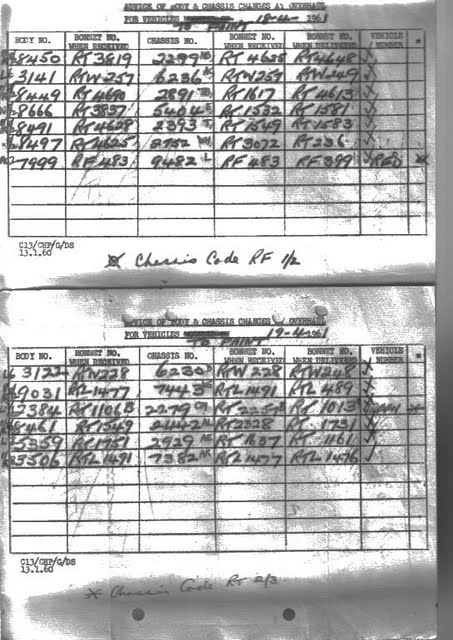 NOTICE OF BODY & CHASSIS CHANGES AT OVERHAUL
FOR VEHICLES TO PAINT 18-4-1961
BODY NO. BONNET NO. WHEN RECEIVED CHASSIS NO. BONNET NO. WHEN RECEIVED BONNET NO. WHEN DELIVERED VEHICLE NUMBER *
8450 RT 3819 2299 RT 4625 RT 4648 ✓
3141 RTW 257 6236 RTW 257 RTW 249 ✓
8449 RT 4690 2891 RT 1617 RT 4613 ✓
8666 RT 3837 5404 RT 1532 RT 1581 ✓
8491 RT 4628 2393 RT 1549 RT 1583 ✓
8497 RT 4625 2752 RT 3072 RT 236 ✓
7999 RF 483 9482 L RF 483 RF 399 RED *
C13/CHP/G/DS
13.1.60
* Chassis Code RF 1/2
NOTICE OF BODY & CHASSIS CHANGES AT OVERHAUL
FOR VEHICLES TO PAINT 19-4-1961
BODY NO. BONNET NO. WHEN RECEIVED CHASSIS NO. BONNET NO. WHEN RECEIVED BONNET NO. WHEN DELIVERED VEHICLE NUMBER *
3122 RTW 228 6230 RTW 228 RTW 248
9031 RTL 1477 7443 RTL 1491 RTL 489
2384 RT 1106 2279 RT 1013 *
8461 RT 1549 2442 AL RT 2328 RT 1731 ✓
5359 RT 1751 2929 RT 1637 RT 1161 ✓
5506 RTL 1491 7382 RTL 1477 RTL 1476 ✓
C13/CHP/G/DS
13.1.60
* Chassis Code RT 2/3